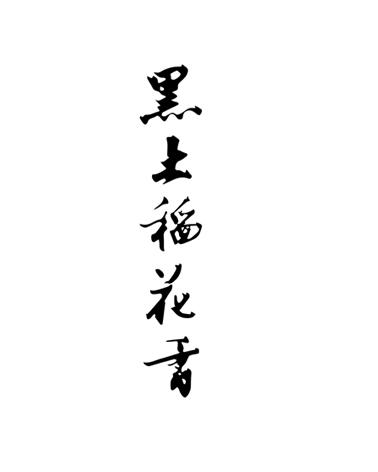 黑土稻花香